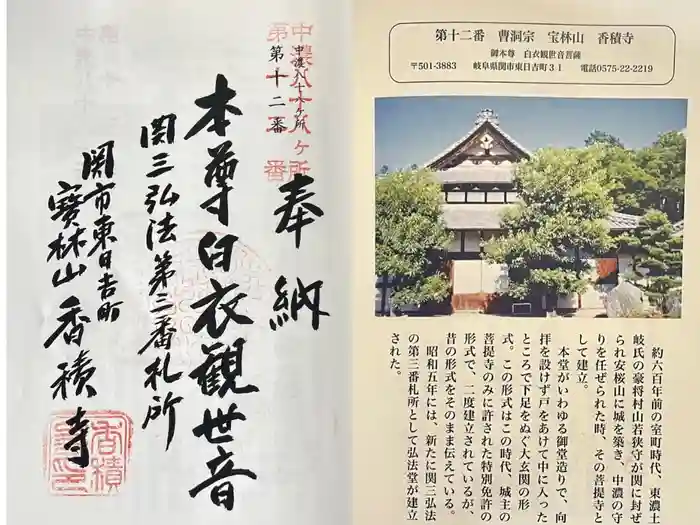 第十二番 曹洞宗 宝林山 香積寺
御本尊 白衣観世音菩薩
〒501-3883 岐阜県関市東日吉町31 電話0575-22-2219
約六百年前の室町時代、東濃土
岐氏の豪将村山若狭守が関に封ぜ
られ安桜山に城を築き、中濃の守
りを任ぜられた時、その菩提寺と
して建立。
本堂がいわゆる御堂造りで、向
拝を設けず戸をあけて中に入った
ところで下足をぬぐ大玄関の形
式。この形式はこの時代、城主の
菩提寺のみに許された特別免許の
形式で、二度建立されているが、
昔の形式をそのまま伝えている。
昭和五年には、新たに関三弘法
の第三番札所として弘法堂が建立
された。
奉納
中濃八十八ヶ所
第十二番
中濃八十八ヶ所
第十二番
本尊白衣観世音
関三弘法第三番札所
関市東日吉町
寳林山香積寺
香積